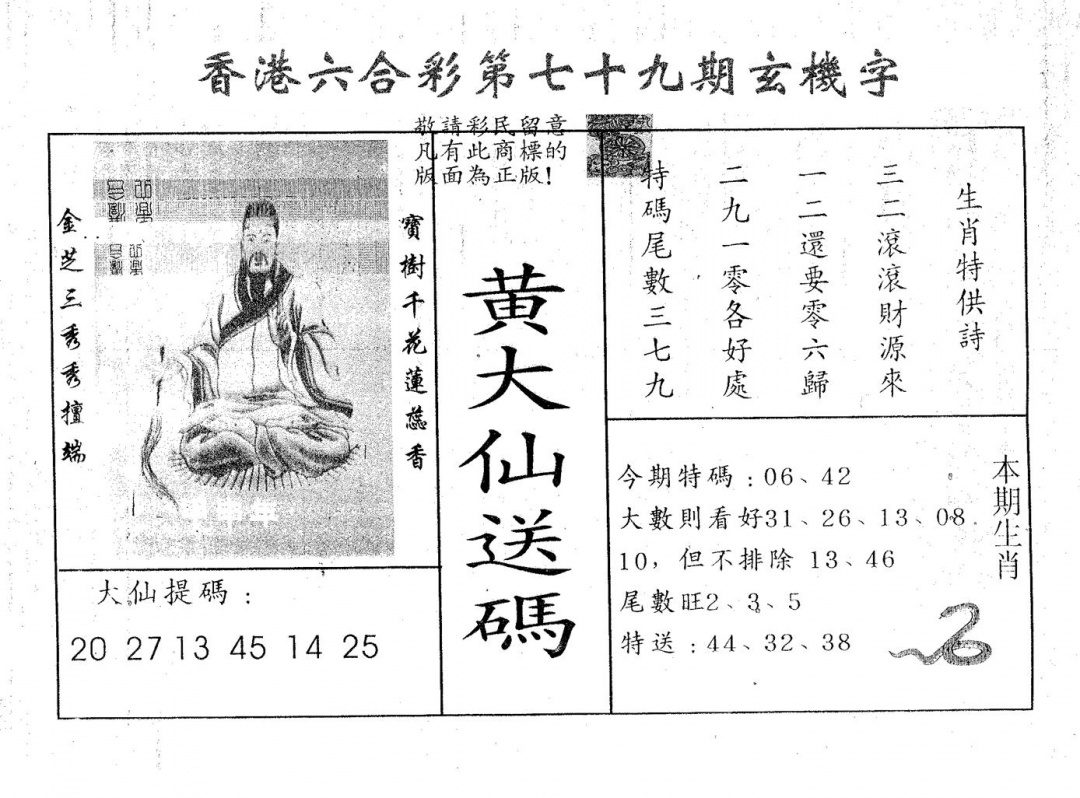 香港六合彩第七十九期玄機字
敬請彩民留意
凡有此商標的
版面為正版!
金芝三秀秀擅端
寶樹千花蓮蕊香
大仙提碼:
20 27 13 45 14 25
黄大仙送碼
生肖特供詩
三二滾滾財源來
一二還要零六歸
二九一零各好處
特碼尾數三七九
本期生肖
今期特碼:06、42
大數則看好31、26、13、08
10,但不排除 13、46
尾數旺2、3、5
特送:44、32、38